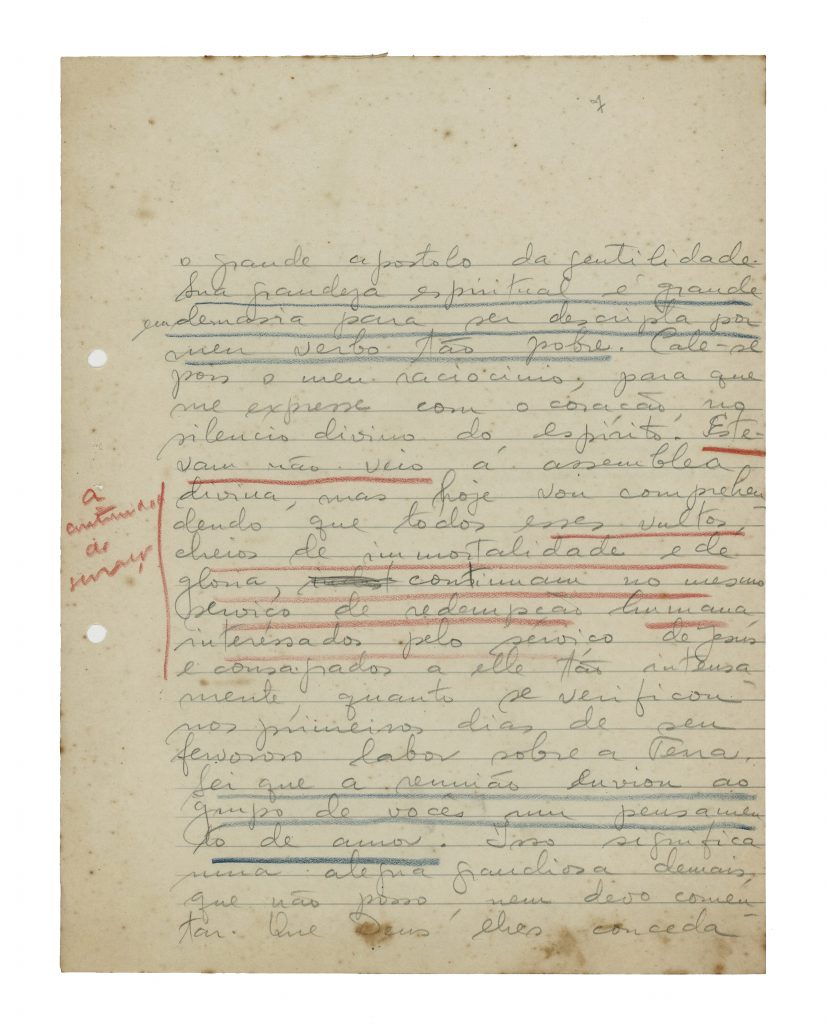 7
o grande apostolo da gentilidade.
Sua grandeza espiritual é grande
em demasia para ser descripta por
meu verbo tão pobre. Cale-se
pois o meu raciocinio, para que
me expresse com o coração, no
silencio divino do espírito. Este-
vam não veio á assemblea
divina, mas hoje vou comprehen-
dendo que todos esses vultos,
cheios de immortalidade e de
gloria, continuam no mesmo
serviço de redempção humana
interessados pelo serviço de Jesús
e consagrados a elle tão intensa
mente, quanto se verificou
nos primeiros dias de seu
fervoroso labor sobre a Terra.
Sei que a reunião enviou ao
grupo de vocês um pensamen
to de amor. Isso significa
uma alegria grandiosa demais,
que não posso nem devo comen-
tar. Que Deus lhes conceda
a
de